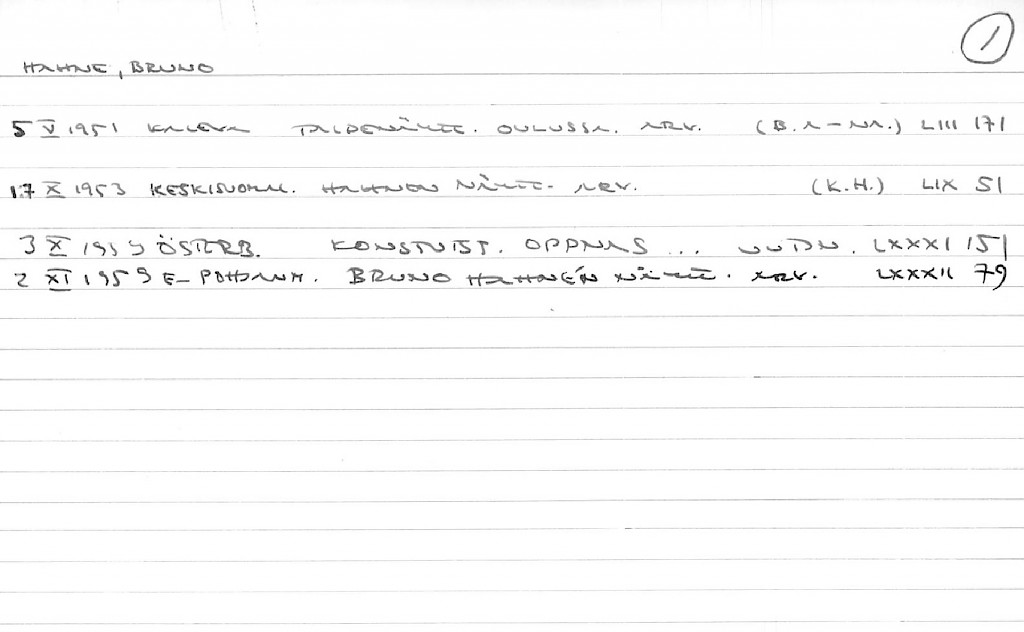 1
HAHNE, BRUNO
5 V 1951 KALEVA TAIDENÄYTT. OULUSSA. ARV. (B. A-NA.) LIII 171
17 X 1953 KESKISUOMAL. HAHNEN NÄYTT. ARV. (K.H.) LIX 51
3 X 1959 ÖSTERB. KONSTUTST. ÖPPNAS ... LXXXI 151
2 XI 1959 E-POHJANM. BRUNO HAHNEN NÄYTT. ARV. LXXXII 79